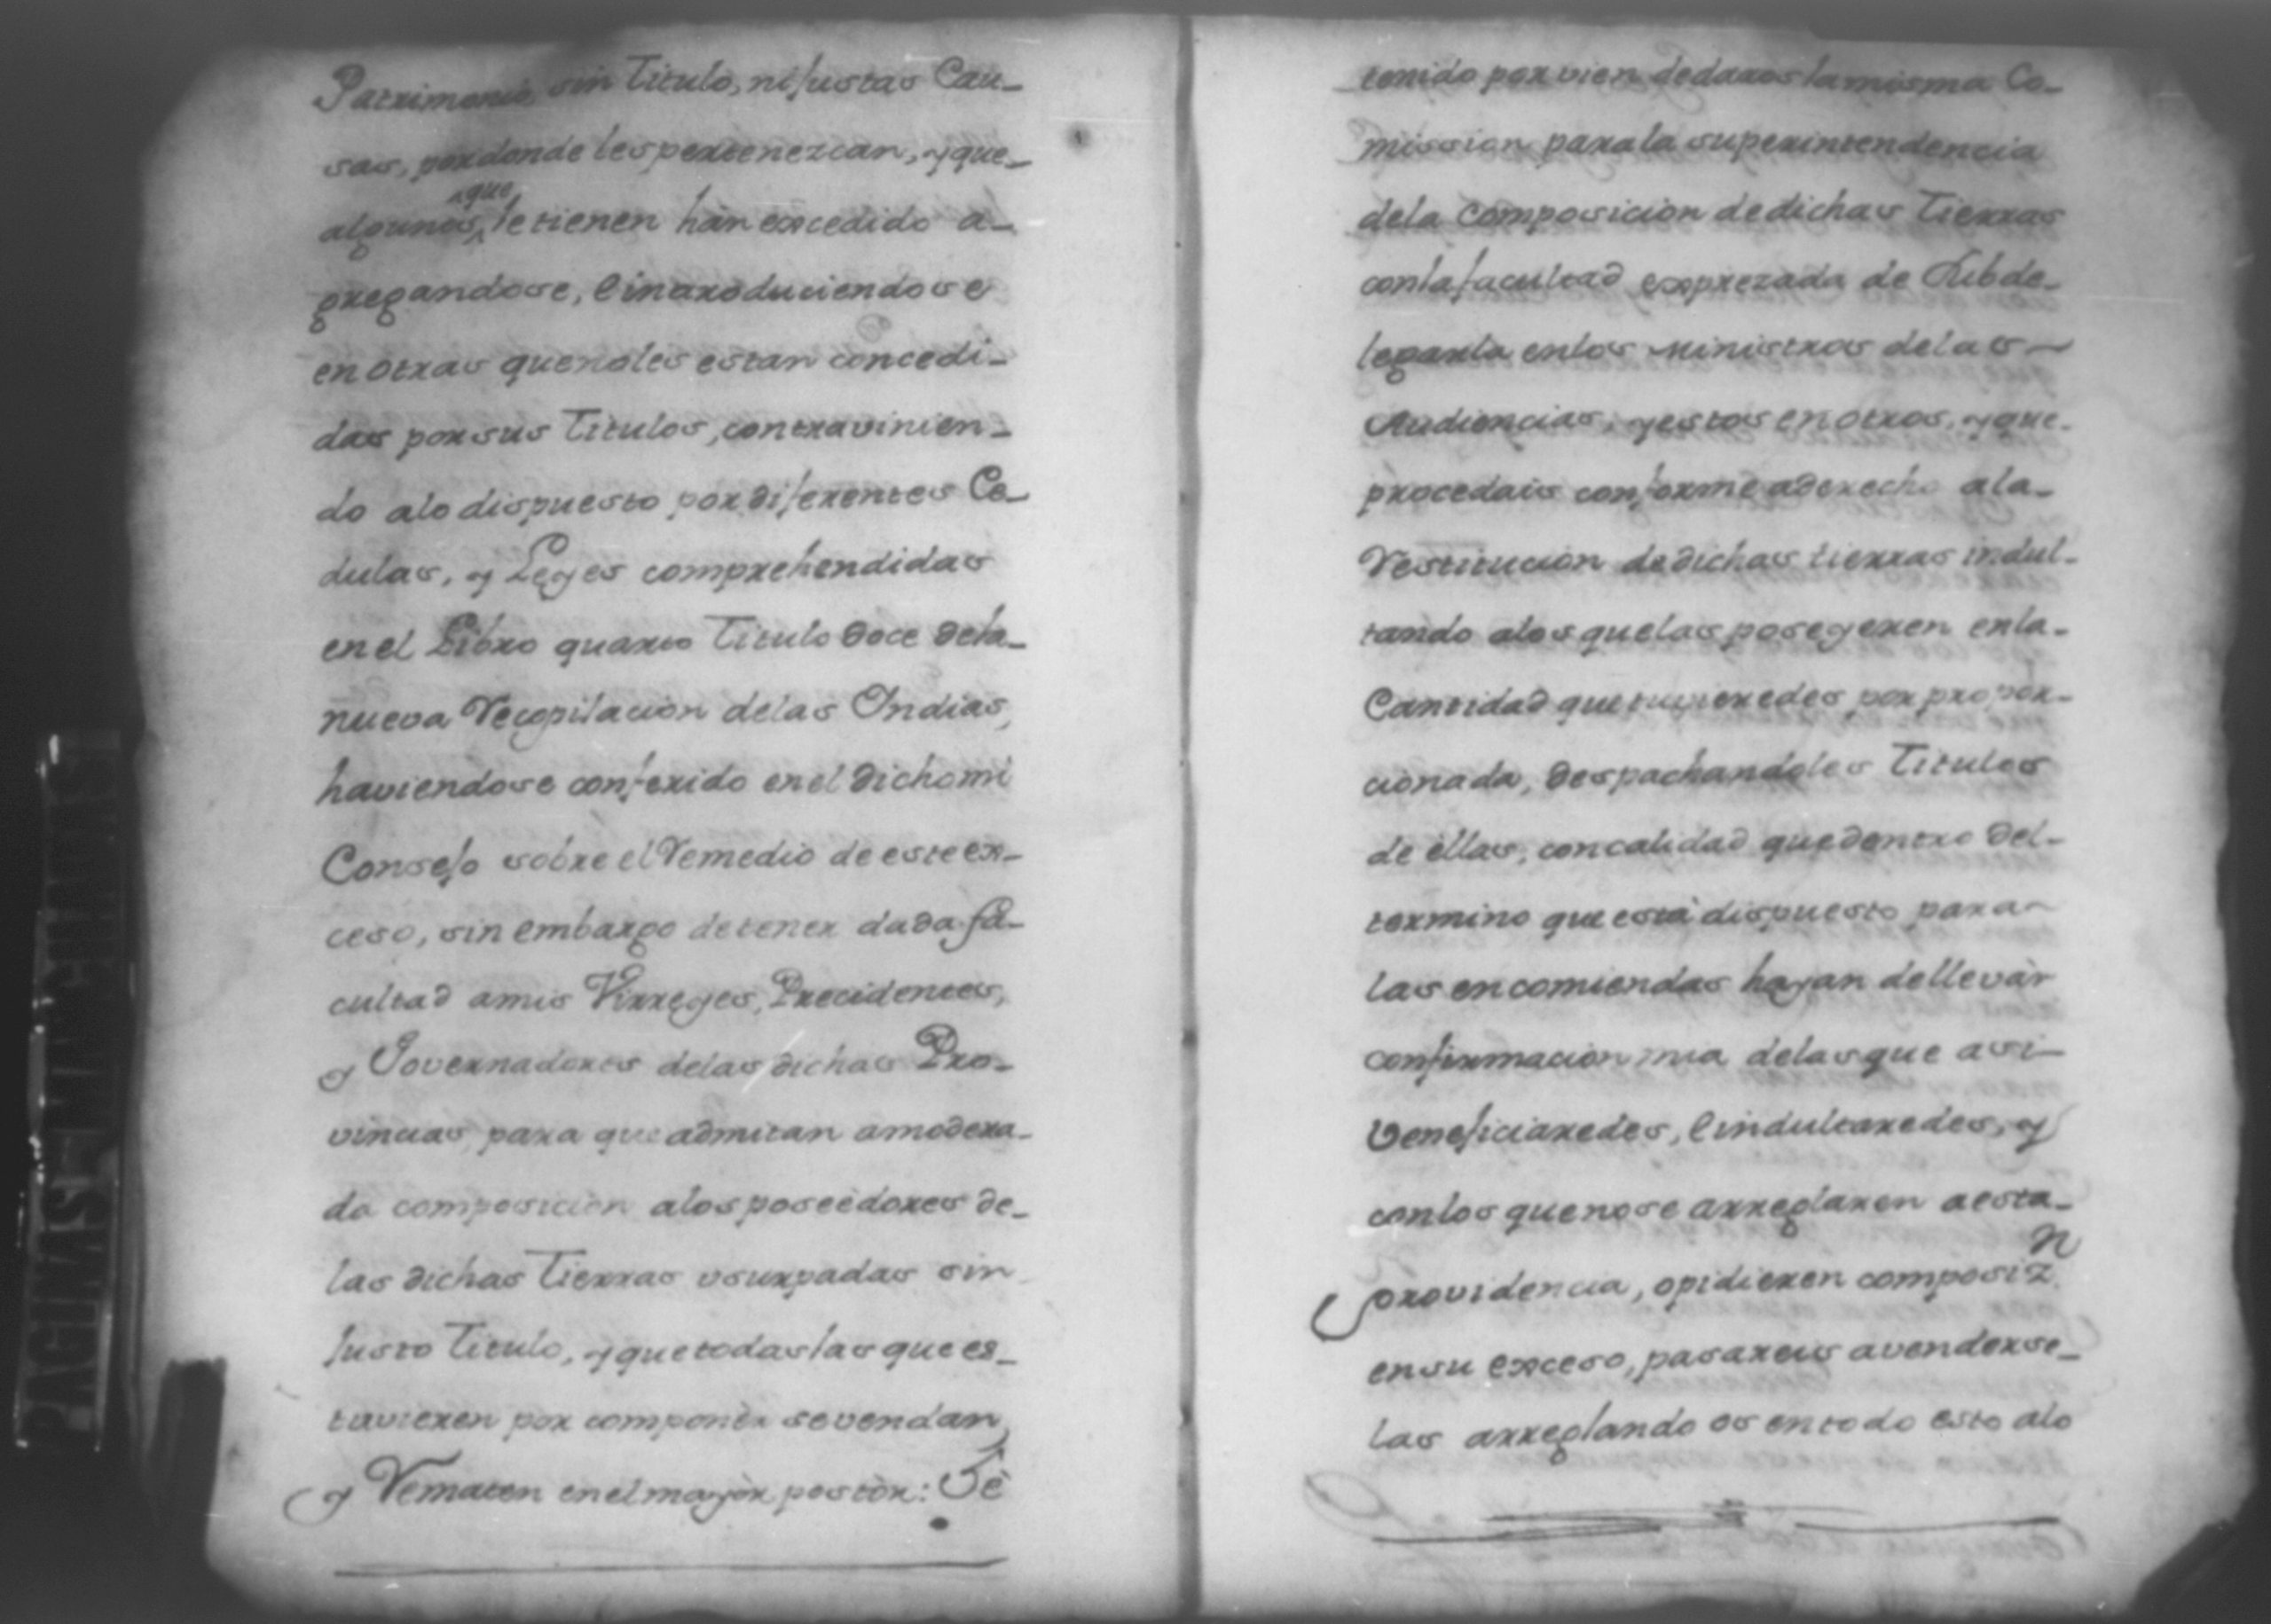 Patrimonio, sin Titulo, ni justas Cau-
sas, por donde les pertenezcan, y que-
algunos que le tienen hán excedido a-
gregandose, é introduciendose
en otras que no les estan concedi-
das por sus Titulos, contravinien-
do a lo dispuesto por diferentes Ce-
dulas, y Leyes comprehendidas
en el Libro quarto Titulo doce de la-
nueva Recopilacion de las Indias,
haviendose conferido en el dicho mi
Consejo sobre el Remedio de este ex-
ceso, sin embargo de tener dada fa-
cultad a mis Virreyes, Precidentes,
y Governadores de las dichas Pro-
vincias, para que admitan a modera-
da composicion a los poseèdores de-
las dichas Tierras usurpadas sin
justo Titulo, y que todas las que es-
tuvieren por componèr se vendan
y Rematen en el mayòr postòr: Hè
tenido por vien de daros la misma Co-
mission para la superintendencia
de la Composicion de dichas Tierras
con la facultad exprezada de Subde-
legarla en los Ministros de las
Audiencias, y estos en otros, y que-
procedais conforme a derecho a la-
Restitucion de dichas tierras indul-
tando a los que las poseyeren en la-
Cantidad que tuvieredes por propor-
cionada, despachandoles Titulos
de ellas, con calidad que dentro del-
termino que está dispuesto para
las encomiendas hayan de llevàr
confirmacion mia de las que asi-
veneficiaredes, é indultaredes, y
con los que no se arreglaren a esta-
providencia, o pidieren composiz.n
en su exceso, pasareis a venderse-
las arreglando os en todo esto a lo
PAGIMS